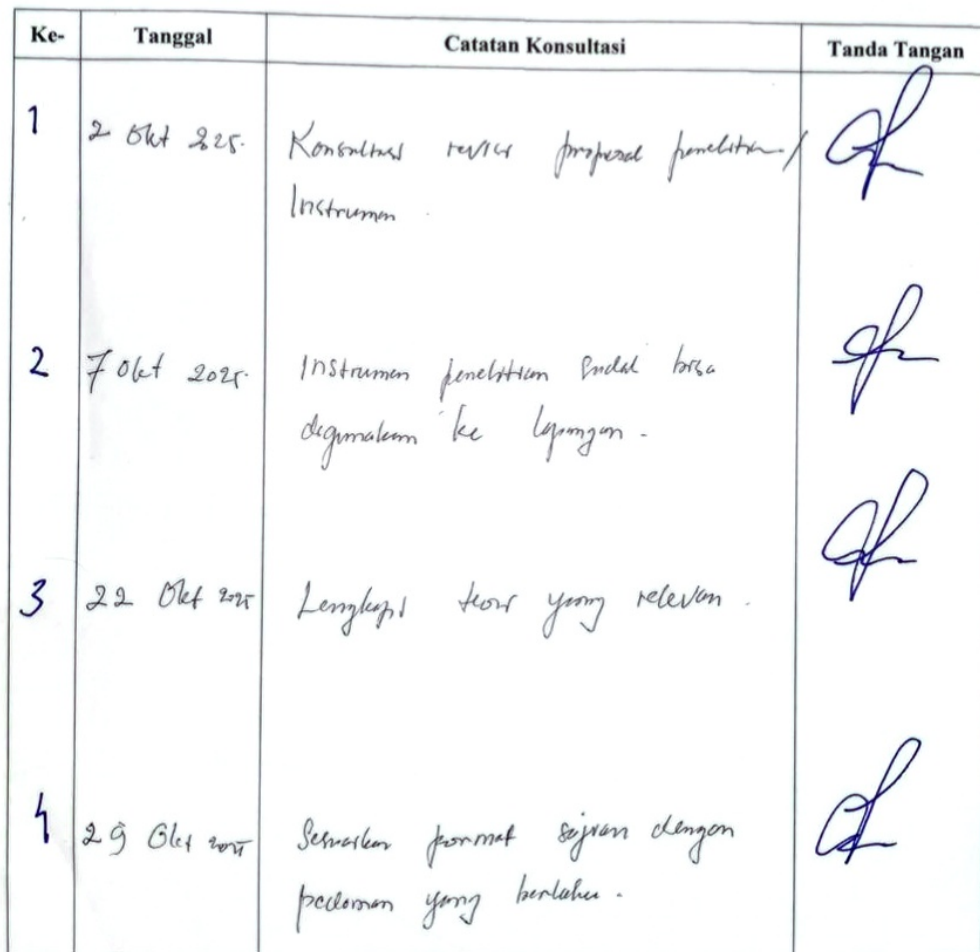 Ke- Tanggal Catatan Konsultasi Tanda Tangan
1 2 Okt 2025. Konsultasi revisi proposal penelitian /
Instrumen.
2 7 Okt 2025. Instrumen penelitian sudah bisa
digunakan ke lapangan.
3 22 Okt 2025 Lengkapi teori yang relevan.
4 29 Okt 2025 Sesuaikan format sajian dengan
pedoman yang berlaku.